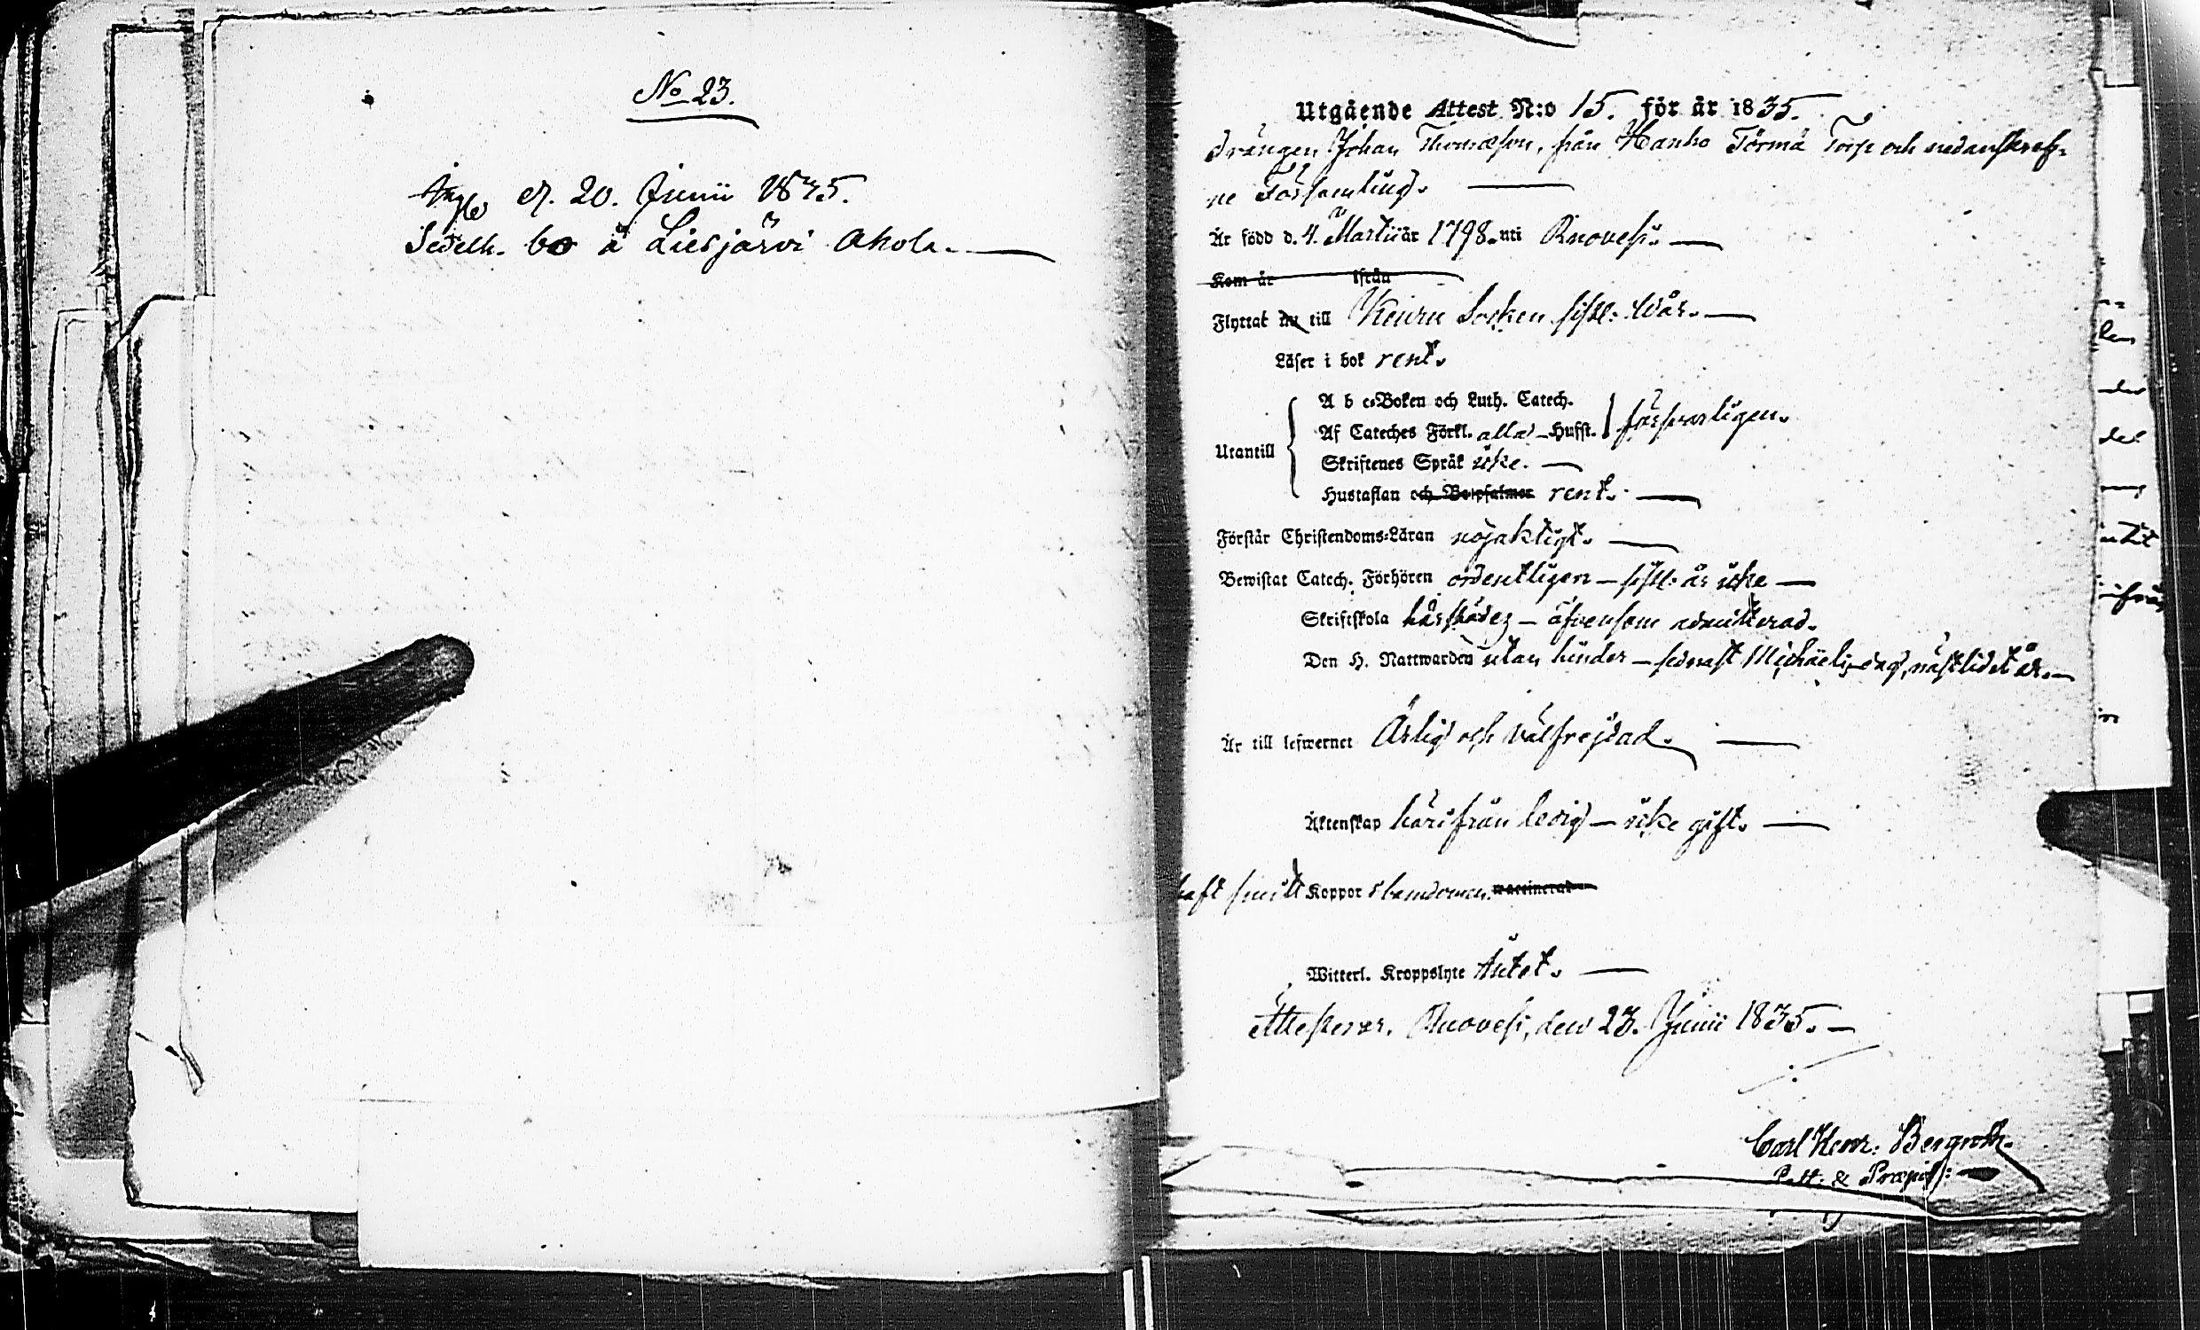 No 23.
d. 20. Junii 1835.
bo å Liesjärvi Ahola.
Utgående Attest N:o 15. för år 1835.
Drängen Johan Thomasson, från Hanho Törmä Torp och nedanskref-
ne Församling.
Är född d. 4. Martii år 1798. uti Ruovesi.
Kom år ifrån
Flyttat nu till Keuru Socken sistl: Wår.
Läser i bok rent.
A b c-Boken och Luth. Catech.
Af Cateches Förkl. alla Hufst. försvarligen.
Utantill
Skriftenes Språk icke.
Hustaflan och Botpsalmer rent.
Förstår Christendoms-Läran nöjaktigt.
Bewistat Catech. Förhören ordentligen – sistl: år icke –
Skriftskola härstädes – äfvensom admitterad.
Den H. Nattwarden utan hinder – sednast Michaeli dag, nästlidet år.
Är till lefwernet Ärlig och välfrejdad.
Äktenskap härifrån ledig – icke gift.
haft smitt Koppor i barndomen. vaccinerad
Witterl. Kroppslyte Intet.
Attesterar. Ruovesi, den 23. Junii 1835.
Carl Henr: Bergroth.
P. H. & Præpos: